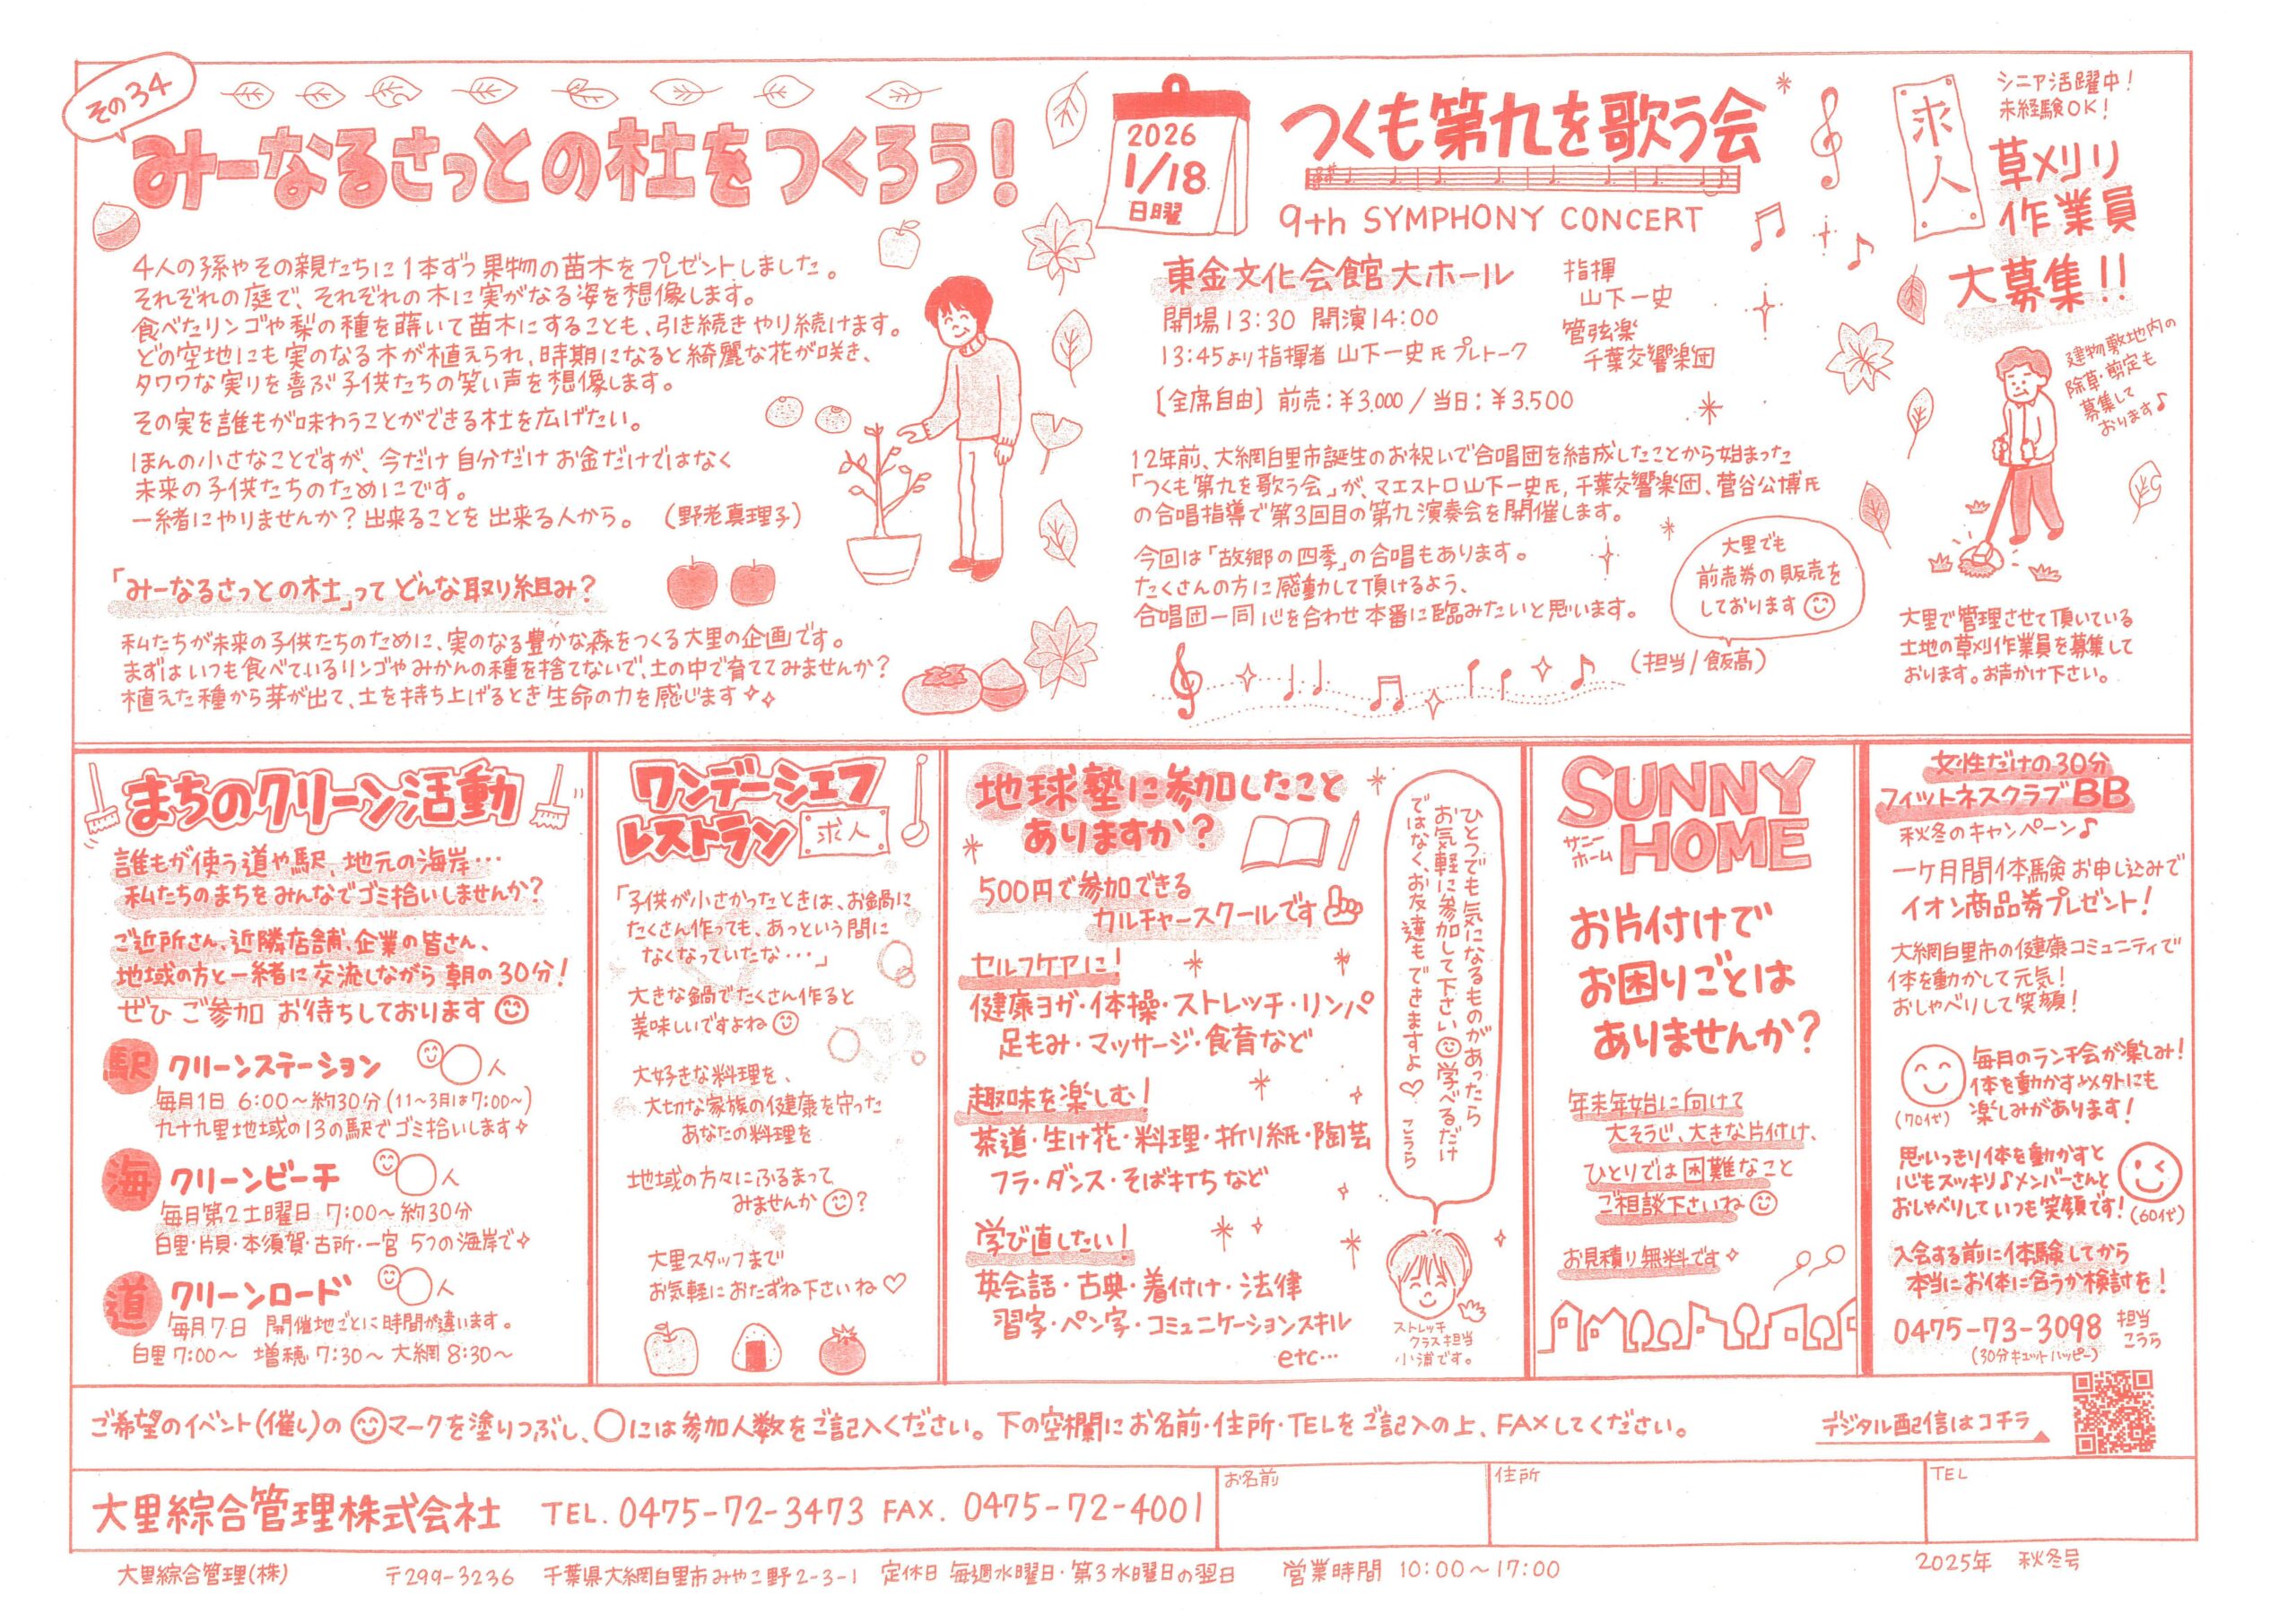 その34
みーなるさっとの杜をつくろう!
4人の孫やその親たちに1本ずつ果物の苗木をプレゼントしました。
それぞれの庭で、それぞれの木に実がなる姿を想像します。
食べたリンゴや梨の種を蒔いて苗木にすることも、引き続きやり続けます。
どの空地にも実のなる木が植えられ、時期になると綺麗な花が咲き、
タワワな実りを喜ぶ子供たちの笑い声を想像します。
その実を誰もが味わうことができる杜を広げたい。
ほんの小さなことですが、今だけ自分だけお金だけではなく
未来の子供たちのためにです。
一緒にやりませんか?出来ることを出来る人から。 (野老真理子)
「みーなるさっとの杜」ってどんな取り組み?
私たちが未来の子供たちのために、実のなる豊かな森をつくる大里の企画です。
まずはいつも食べているリンゴやみかんの種を捨てないで、土の中で育ててみませんか?
植えた種から芽が出て、土を持ち上げるとき生命の力を感じます
2026
1/18
日曜
つくも第九を歌う会
9th SYMPHONY CONCERT
東金文化会館大ホール
開場13:30 開演14:00
13:45より指揮者 山下一史氏プレトーク
[全席自由] 前売:¥3,000/当日:¥3,500
指揮
山下一史
管弦楽
千葉交響楽団
12年前、大網白里市誕生のお祝いで合唱団を結成したことから始まった
「つくも第九を歌う会」が、マエストロ山下一史氏、千葉交響楽団、菅谷公博氏
の合唱指導で第3回目の第九演奏会を開催します。
今回は「故郷の四季」の合唱もあります。
たくさんの方に感動して頂けるよう、
合唱団一同心を合わせ本番に臨みたいと思います。
(担当/飯高)
大里でも
前売券の販売を
しております
求人
シニア活躍中!
未経験OK!
草刈り
作業員
大募集!!
建物敷地内の
除草・剪定も
募集して
おります♪
大里で管理させて頂いている
土地の草刈作業員を募集して
おります。お声かけ下さい。
まちのクリーン活動
誰もが使う道や駅、地元の海岸…
私たちのまちをみんなでゴミ拾いしませんか?
ご近所さん、近隣店舗、企業の皆さん、
地域の方と一緒に交流しながら朝の30分!
ぜひご参加お待ちしております
駅 クリーンステーション 人
毎月1日 6:00〜約30分(11〜3月は7:00〜)
九十九里地域の13の駅でゴミ拾いします
海 クリーンビーチ 人
毎月第2土曜日 7:00〜約30分
白里・片貝・本須賀・古所・一宮 5つの海岸で
道 クリーンロード 人
毎月7日 開催地ごとに時間が違います。
白里7:00〜 増穂7:30〜大網8:30〜
ワンデーシェフ
レストラン 求人
「子供が小さかったときは、お鍋に
たくさん作っても、あっという間に
なくなっていたな・・・」
大きな鍋でたくさん作ると
美味しいですよね
大好きな料理を、
大切な家族の健康を守った
あなたの料理を
地域の方々にふるまって
みませんか?
大里スタッフまで
お気軽におたずね下さいね♡
地球塾に参加したこと
ありますか?
500円で参加できる
カルチャースクールです
セルフケアに!
健康ヨガ・体操・ストレッチ・リンパ
足もみ・マッサージ・食育など
趣味を楽しむ!
茶道・生け花・料理・折り紙・陶芸
フラ・ダンス・そば打ちなど
学び直したい!
英会話・古典・着付け・法律
習字・ペン字・コミュニケーションスキル
etc…
ひとつでも気になるものがあったら
お気軽に参加して下さい学べるだけ
ではなく、お友達もできますよ♡ こうら
ストレッチ
クラス担当
小浦です。
SUNNY
サニー
ホーム
HOME
お片付けで
お困りごとは
ありませんか?
年末年始に向けて
大そうじ、大きな片付け、
ひとりでは困難なこと
ご相談下さいね
お見積り無料です
女性だけの30分
フィットネスクラブBB
秋冬のキャンペーン♪
一ケ月間体験お申し込みで
イオン商品券プレゼント!
大網白里市の健康コミュニティで
体を動かして元気!
おしゃべりして笑顔!
毎月のランチ会が楽しみ!
体を動かす以外にも
楽しみがあります!
(70代)
思いっきり体を動かすと
心もスッキリ♪メンバーさんと
おしゃべりしていつも笑顔です!(60代)
入会する前に体験してから
本当にお体に合うか検討を!
0475-73-3098 担当
こうら
(30分キュットハッピー)
ご希望のイベント(催し)のマークを塗りつぶし、○には参加人数をご記入ください。下の空欄にお名前・住所・TELをご記入の上、FAXしてください。
デジタル配信はコチラ
大里綜合管理株式会社 TEL. 0475-72-3473 FAX. 0475-72-4001
お名前
住所
TEL
大里綜合管理(株) 〒299-3236 千葉県大網白里市みやこ野2-3-1 定休日 毎週水曜日・第3水曜日の翌日 営業時間 10:00〜17:00
2025年 秋冬号